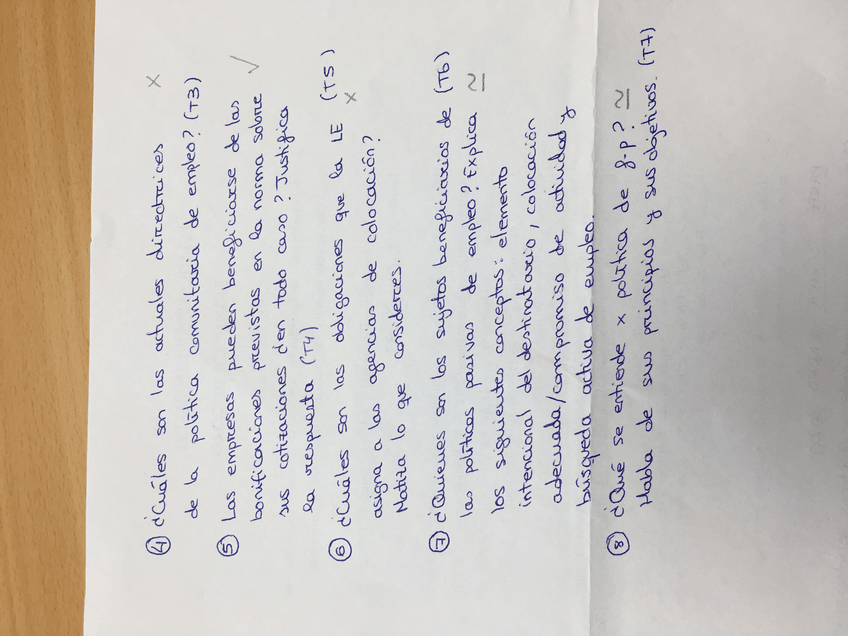 ④ ¿Cuáles son las actuales directrices ×
de la política comunitaria de empleo? (T3)
⑤ Las empresas pueden beneficiarse de las ✓
bonificaciones previstas en la norma sobre
sus cotizaciones ¿en todo caso? Justifica
la respuesta (T4)
⑥ ¿Cuáles son las obligaciones que la LE (T5)
asigna a las agencias de colocación? ×
Matiza lo que consideres.
⑦ ¿Quienes son los sujetos beneficiarios de (T6)
las políticas pasivas de empleo? Explica ≃
los siguientes conceptos: elemento
intencional del destinatario, colocación
adecuada/compromiso de actividad y
búsqueda activa de empleo.
⑧ ¿Qué se entiende x política de f-p? ≃
Habla de sus principios y sus objetivos. (T7)